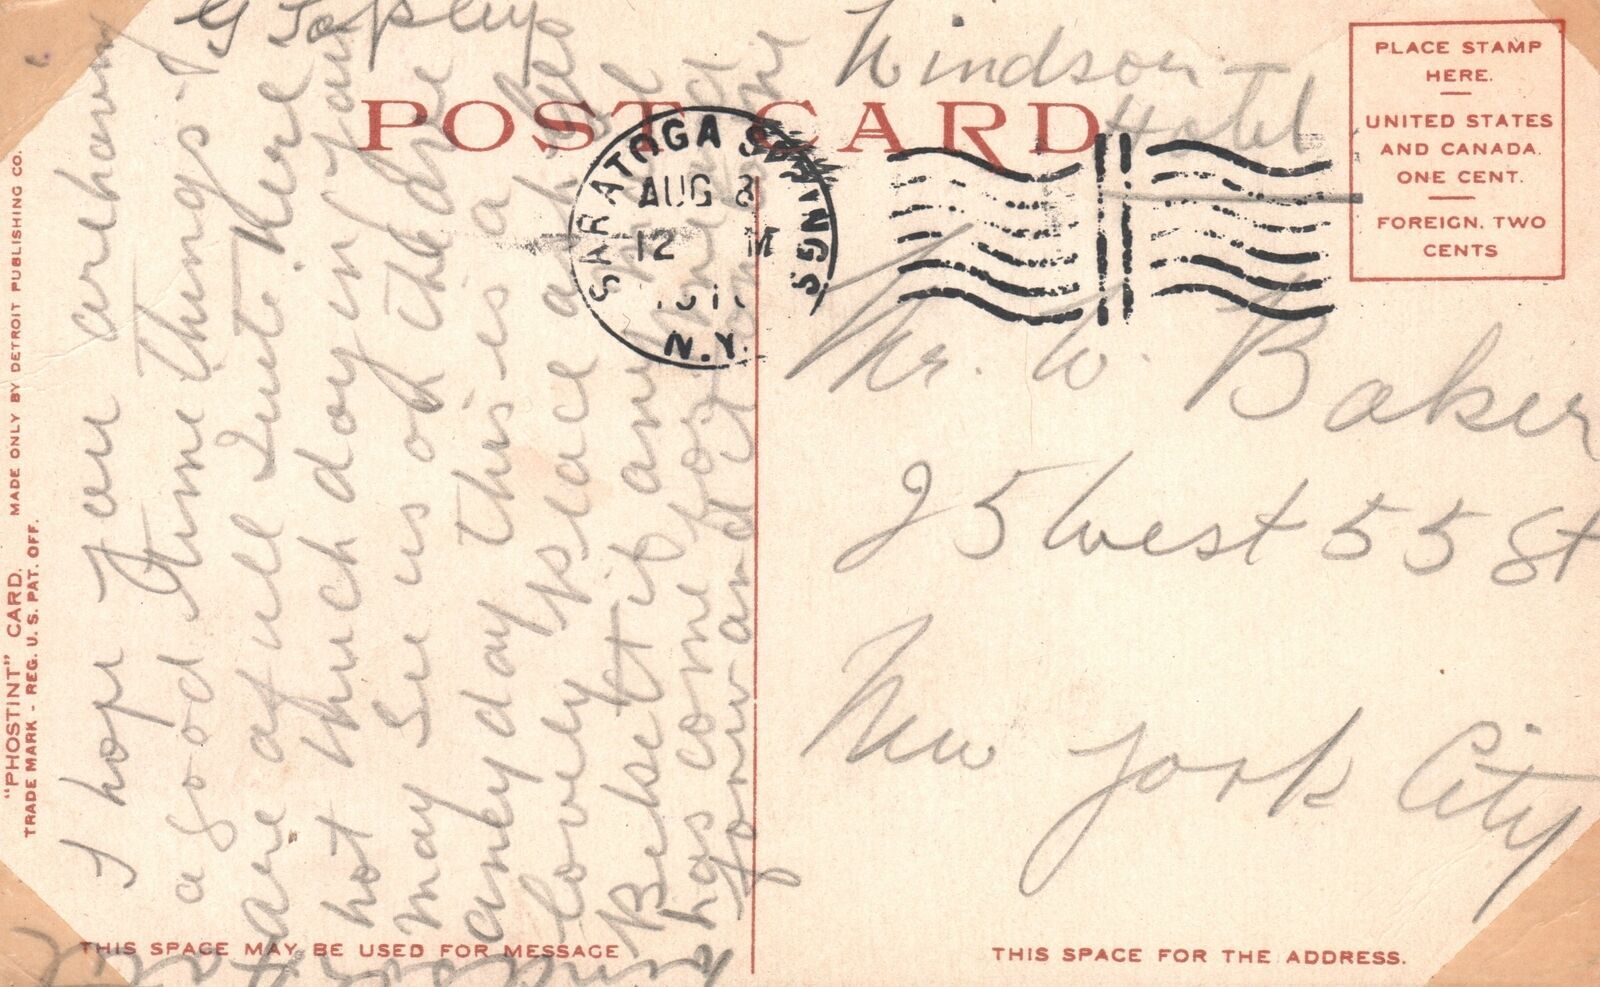 POST CARD
PLACE STAMP
HERE.
UNITED STATES
AND CANADA.
ONE CENT.
FOREIGN, TWO
CENTS
SARATOGA SPRINGS
AUG 8
12 M
N.Y.
Windsor
Hotel
Mr. W. Baker
25 West 55 St
New York City
I hope you are having
a good time things
are afull quite here
not much doy in
may See us of the
any day this is a
lovely place
Behset it any
has come for
forward it
G Tapley
"PHOSTINT" CARD. MADE ONLY BY DETROIT PUBLISHING CO.
TRADE MARK - REG. U. S. PAT. OFF.
THIS SPACE MAY BE USED FOR MESSAGE
THIS SPACE FOR THE ADDRESS.